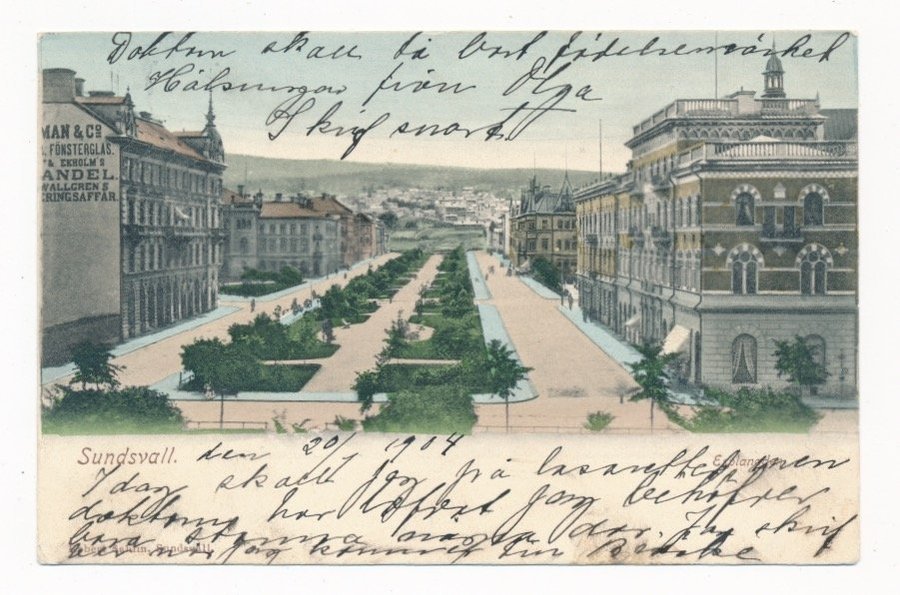 Doktorn skall ta bort födelsemärket
Hälsningar från Olga
Skrif snart.
MAN & Co
FÖNSTERGLAS.
& EKHOLM'S
ANDEL.
WALLGRENS
RINGSAFFÄR.
Sundsvall. den 20/1 1904
Idag skall jag på lasarettet men
doktorn har lofvat jag behöfver
bara stanna några dar. Jag skrif
Sundsvall. jag kommer